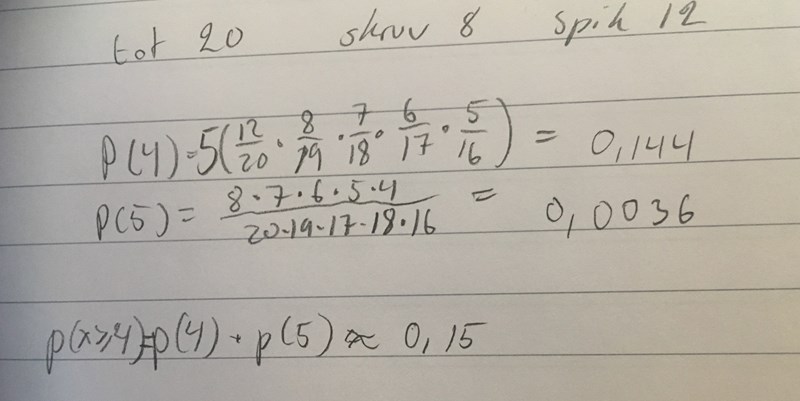 tot 20 skruv 8 spik 12
P(4)=5(12/20 · 8/19 · 7/18 · 6/17 · 5/16) = 0,144
P(5) = 8·7·6·5·4 / 20·19·17·18·16 = 0,0036
p(x≥4)=p(4) + p(5) ≈ 0,15